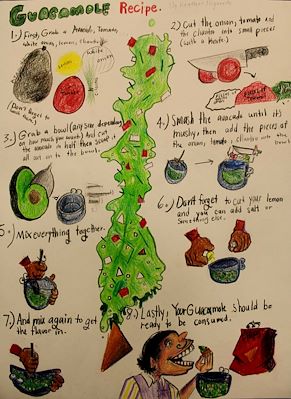 GUACAMOLE Recipe.
1.) First, Grab a Avocado, Tomato,
white onion, lemon, cilantro
white
onion
lemon
(Don't forget to
wash them)
2.) Cut the onion, tomato and
the cilantro into small pieces
(with a knife).
3.) Grab a bowl (any size depending
on how much you want) And cut
the avocado in half then scoop it
all out on to the bowl.
4.) Smash the avocado until it's
mushy, then add the pieces of
the onion, tomato, cilantro into the
bowl
5.) Mix everything together.
6.) Don't forget to cut your lemon
and you can add salt or
something else.
7.) And mix again to get
the flavor in.
8.) Lastly, Your Guacamole should be
ready to be consumed.